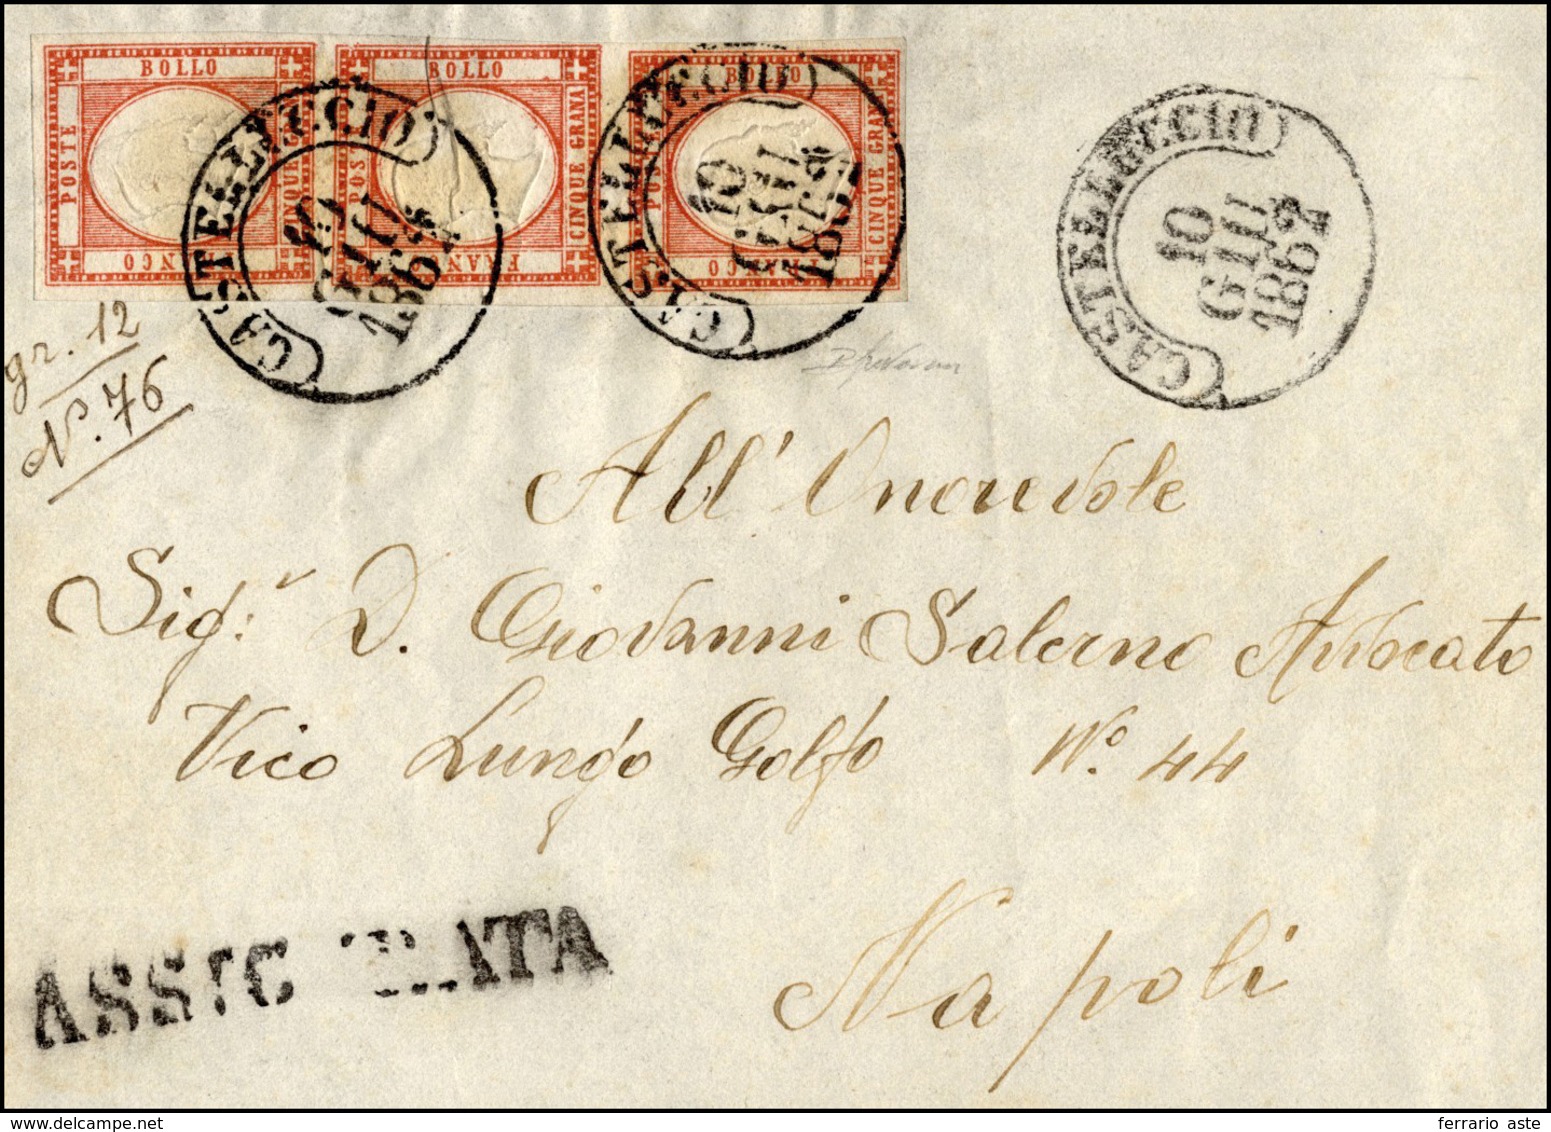 BOLLO
POSTE
CINQUE GRANA
FRANCO
BOLLO
POSTE
CINQUE GRANA
FRANCO
BOLLO
POSTE
CINQUE GRANA
FRANCO
CASTELLUCCIO
10
GIU
1862
CASTELLUCCIO
10
GIU
1862
CASTELLUCCIO
10
GIU
1862
gr. 12
N°. 76
All' Onorevole
Sigr. D. Giovanni Salerno Avvocato
Vico Lungo Gelso N°. 44
Napoli
ASSICURATA
ferrario aste